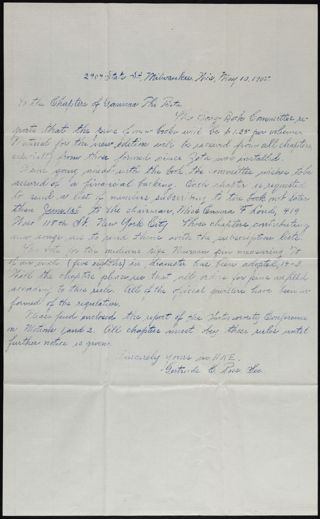 2907 State St. Milwaukee, Wis., May 10, 1905.
To the Chapters of Gamma Phi Beta
The Song Book Committee re-
ports that the price of new books will be $1.25 per volume.
Material for the new edition will be received from all chapters
especially from those formed since Zeta was installed.
Before going ahead with the book the committee wishes to be
assured of a financial backing. Each chapter is requested
to send a list of members subscribing to the book not later
than June 1st to the chairman, Miss Emma F. Lowd, 419
West 118th St. New York City. Those chapters contributing
new songs are to send them with the subscription lists.
The vote for the medium size pin measuring 5/8
of an inch (five eighths) in diameter has been adopted,
Will the chapters please see that all orders for pins are filled
according to this rule. All of the official jewelers have been in-
formed of the regulation.
Please find enclosed the report of the Intersorority Conference
in Motions 1 and 2. All chapters must obey these rules until
further notice is given.
Sincerely yours in ΠΚΕ.
Gertrude C. Ross, Sec.